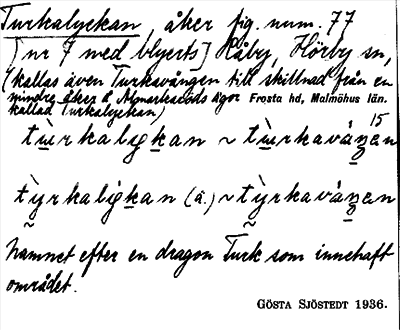 Turkalyckan åker fig. num. 77
[nr 7 med blyerts] Råby, Hörby sn,
(kallas även Turkavången till skillnad från en
mindre åker å ägor Frosta hd, Malmöhus län.
kallad Turkalyckan)
15
tu̇rkaligkan ~ tu̇rkaváŋen
tẏrkaligkan (ä.) ~ tẏrkaváŋen
Namnet efter en dragon Turk som innehaft
området.
GÖSTA SJÖSTEDT 1936.